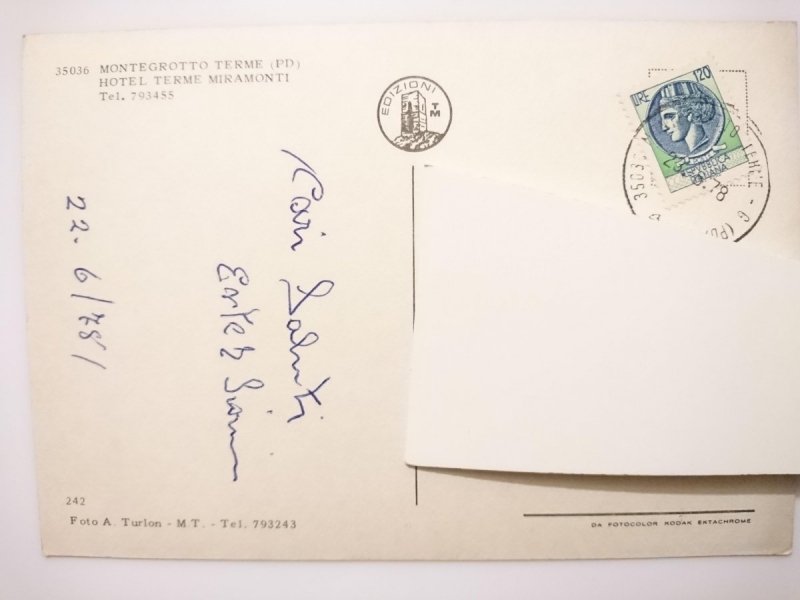 35036 MONTEGROTTO TERME (PD)
HOTEL TERME MIRAMONTI
Tel. 793455
EDIZIONI
TM
LIRE 120
REPVBBLICA
ITALIANA
35036
TERME - G (PD)
78
Cari Saluti
22.6/78
242
Foto A. Turlon - M.T. - Tel. 793243
DA FOTOCOLOR KODAK EKTACHROME